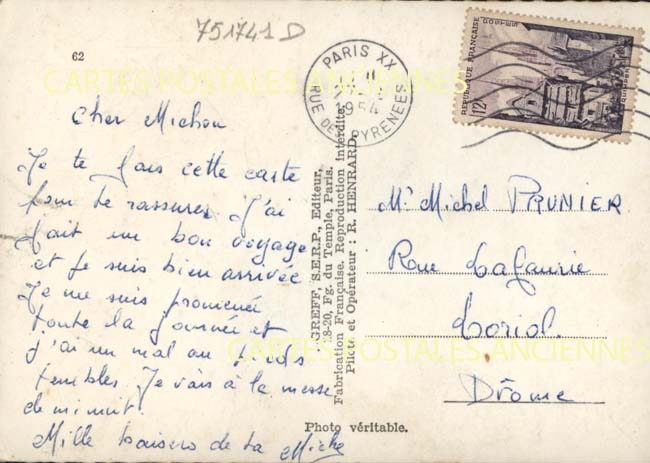 751741 D
62
CARTES POSTALES ANCIENNES
PARIS XX
RUE DES PYRENEES
1954
POSTES
REPUBLIQUE FRANÇAISE
12F
QUIMPER
Cher Michou
Je te fais cette carte
pour te rassurer j'ai
fait un bon voyage
et je suis bien arrivée
Je me suis promenée
toute la journée et
j'ai un mal au pieds
terribles. Je vais à la messe
de minuit.
Mille baisers de ta Miche
GREFF, S.E.R.P., Editeur,
18-20, Fg. du Temple, Paris.
Fabrication Française. Reproduction Interdite.
Pilote et Opérateur : R. HENRARD.
Photo véritable.
Mr Michel PRUNIER
Rue Lafaurie
Loriol
Drôme
CARTES POSTALES ANCIENNES